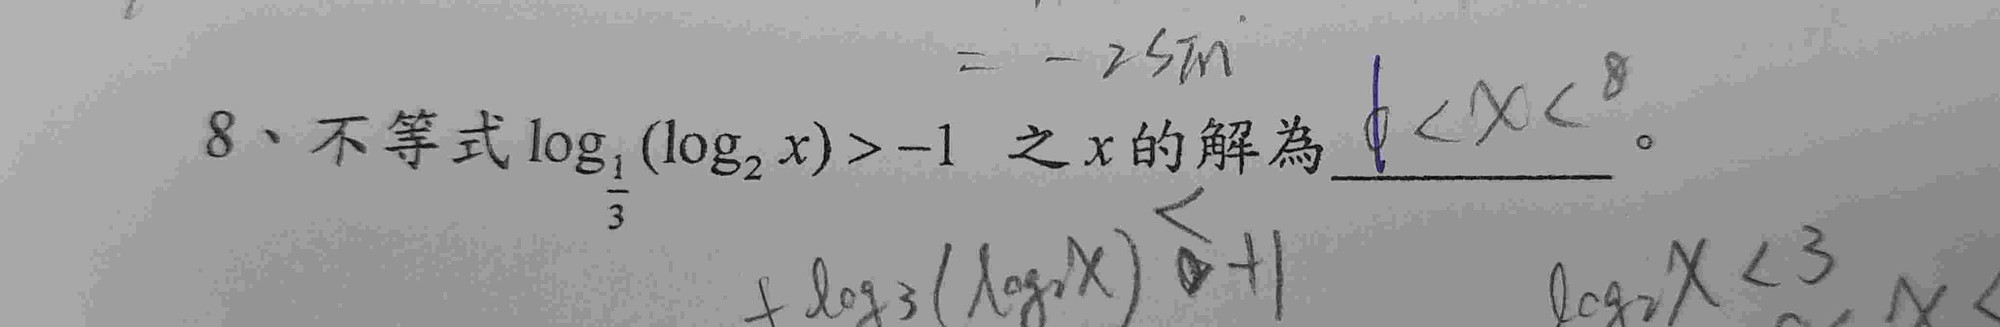 = -2sin
8、不等式 log_{\frac{1}{3}}(log_2 x) > -1 之 x 的解為 1 < x < 8 。
<
+ log_3(log_2 x) +1
log_2 x < 3
x <